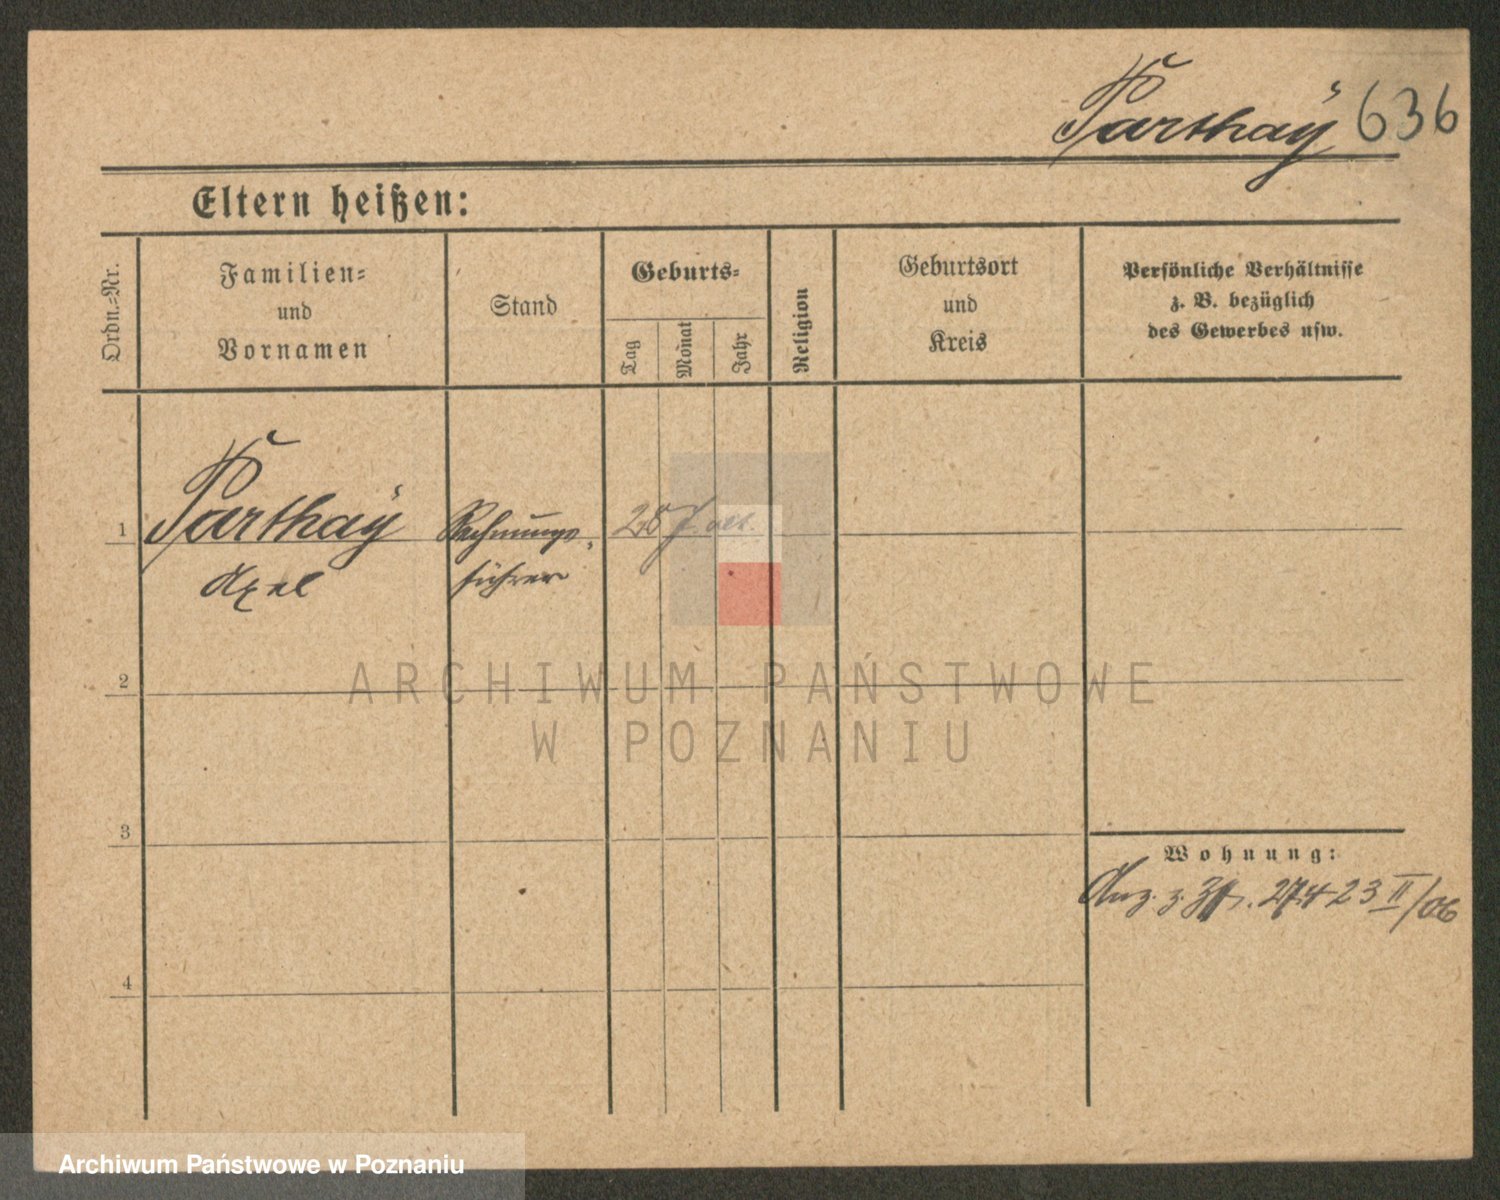 Parthaÿ 636
Eltern heißen:
Ordn.-Nr.
Familien-
und
Vornamen
Stand
Geburts-
Tag
Monat
Jahr
Religion
Geburtsort
und
Kreis
Persönliche Verhältnisse
z. B. bezüglich
des Gewerbes usw.
1 Parthaÿ Rechnungs- 28 J. alt.
Axel führer
2
ARCHIWUM PAŃSTWOWE
W POZNANIU
3
Wohnung:
274 23 II/06
4
Archiwum Państwowe w Poznaniu